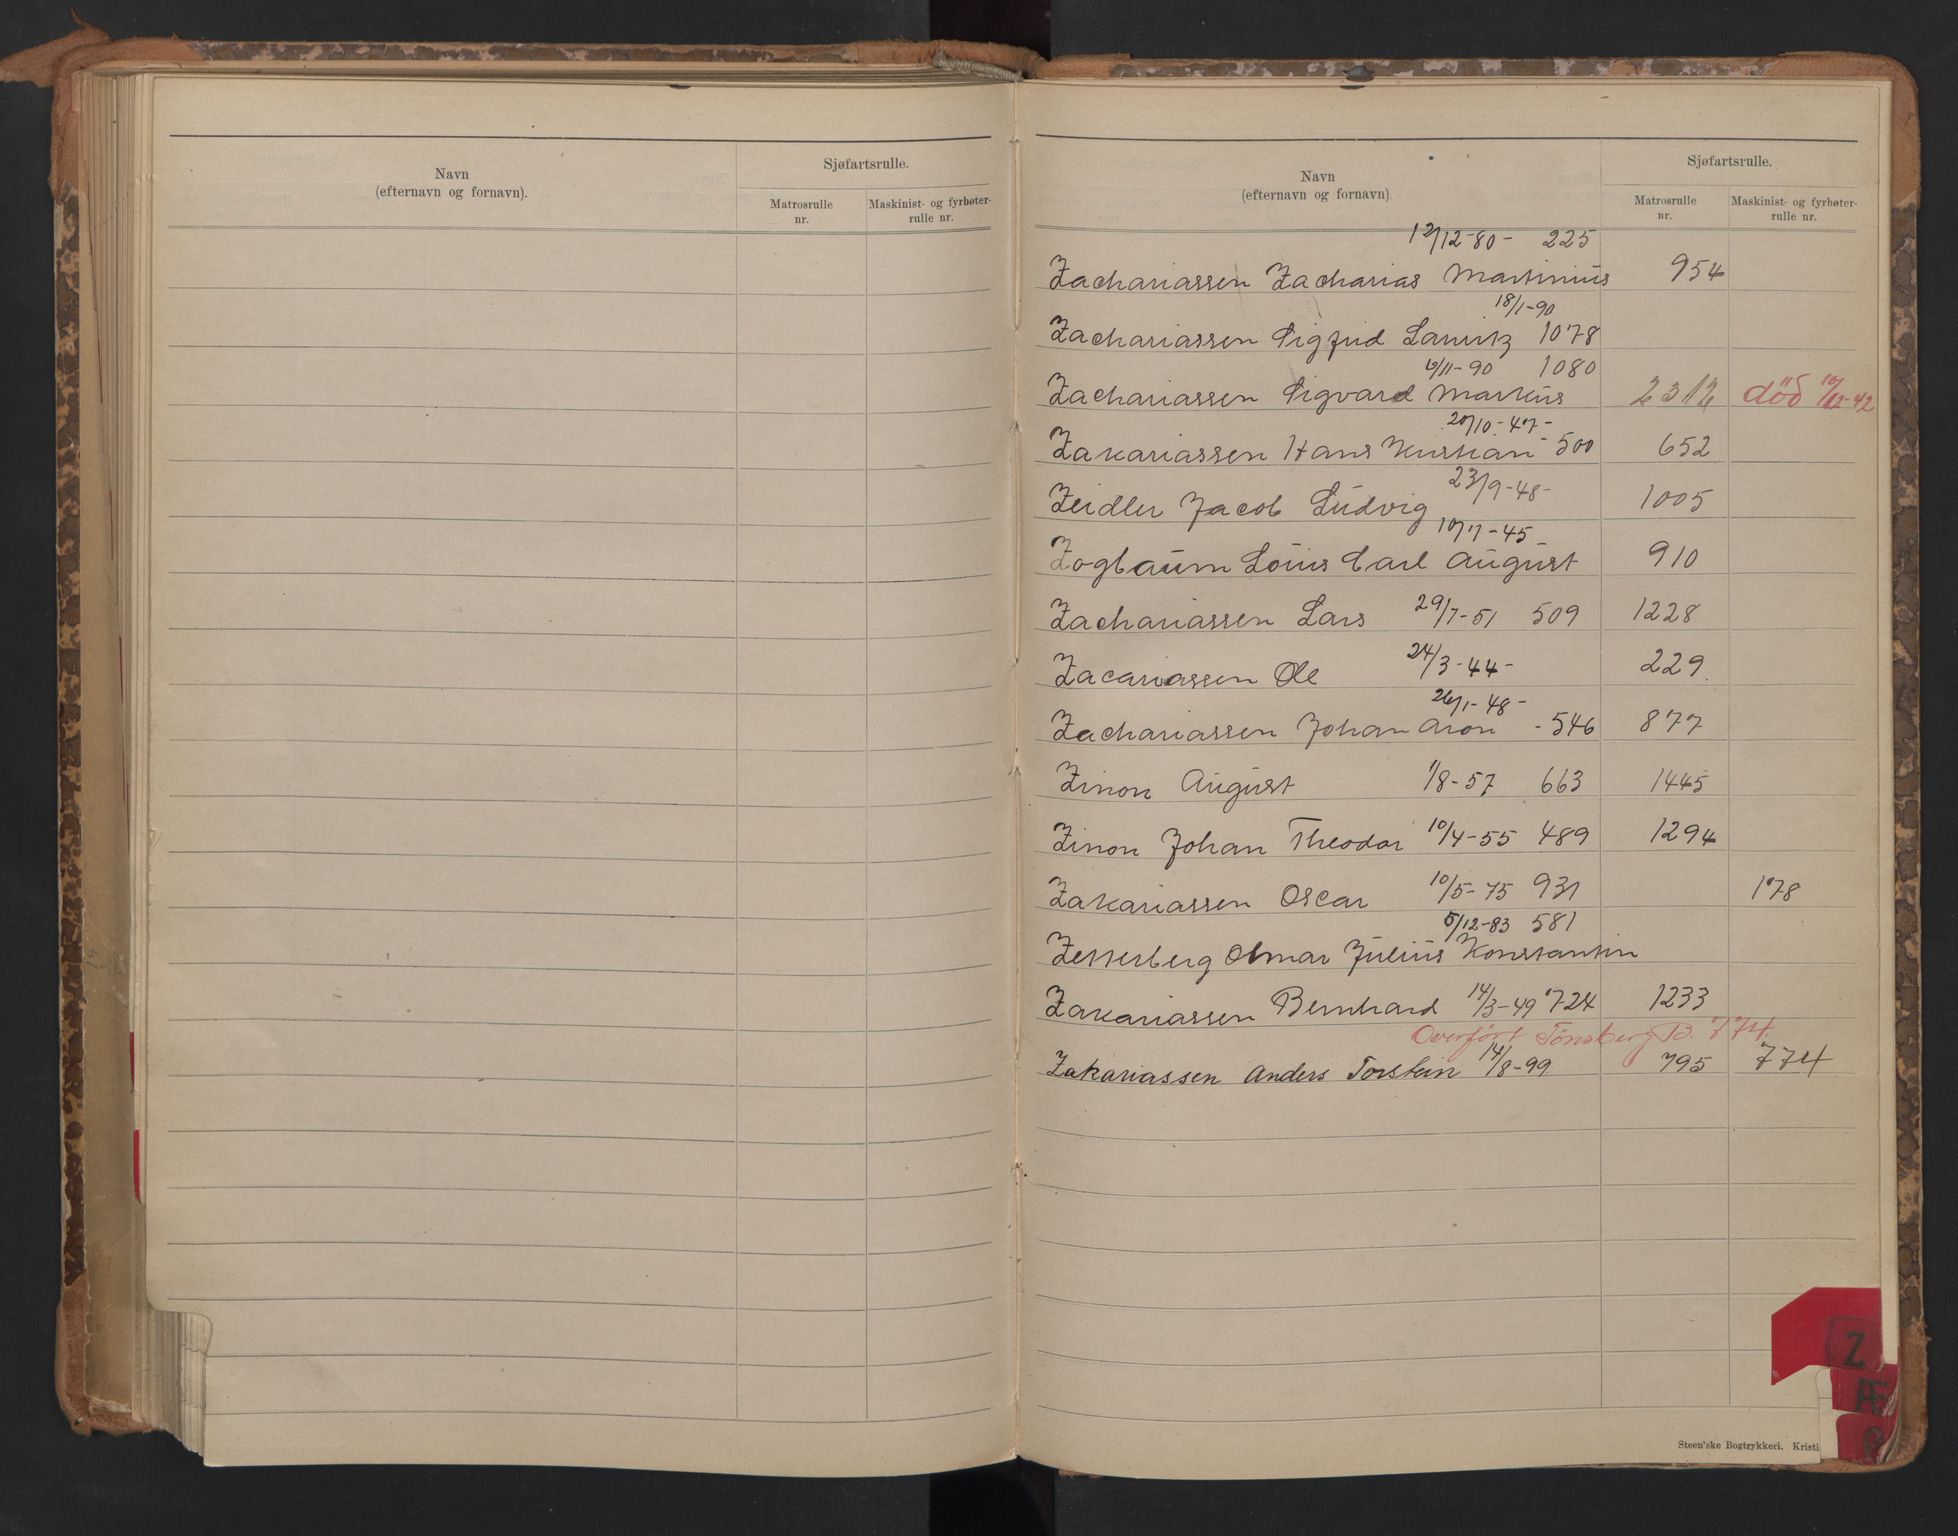 Navn
(efternavn og fornavn).
Sjøfartsrulle.
Matrosrulle
nr.
Maskinist- og fyrbøter-
rulle nr.
Navn
(efternavn og fornavn)
Sjøfartsrulle.
Matrosrulle
nr.
Maskinist- og fyrbøter-
rulle nr.
12/12-80- 225
Zachariassen Zacharias Martinius 954
18/1-90
Zachariassen Sigfrid Lauritz 1078
6/11-90 1080
Zachariassen Sigvard Markus 2312 död 10/12-42
20/10-47-
Zakariassen Hans Kristian -500 652
23/9-48-
Zeidler Jacob Ludvig 1005
10/7-45
Zogbaum Louis Carl August 910
Zachariassen Lars 29/7-51 509 1228
Zacariassen Ole 24/3-44- 229
26/1-48-
Zachariassen Johan Aron -546 877
Zinon August 1/8-57 663 1445
Zinon Johan Theodor 10/4-55 489 1294
Zakariassen Oscar 10/5-75 931 178
5/12-83 581
Zetterberg Olmar Julius Konstantin
Zakariassen Bernhard 14/3-49 724 1233
Overført Tönsberg B. 774.
Zakariassen Anders Torstein 14/8-99 795 774
Z
Æ
Steen'ske Bogtrykkeri. Kristi